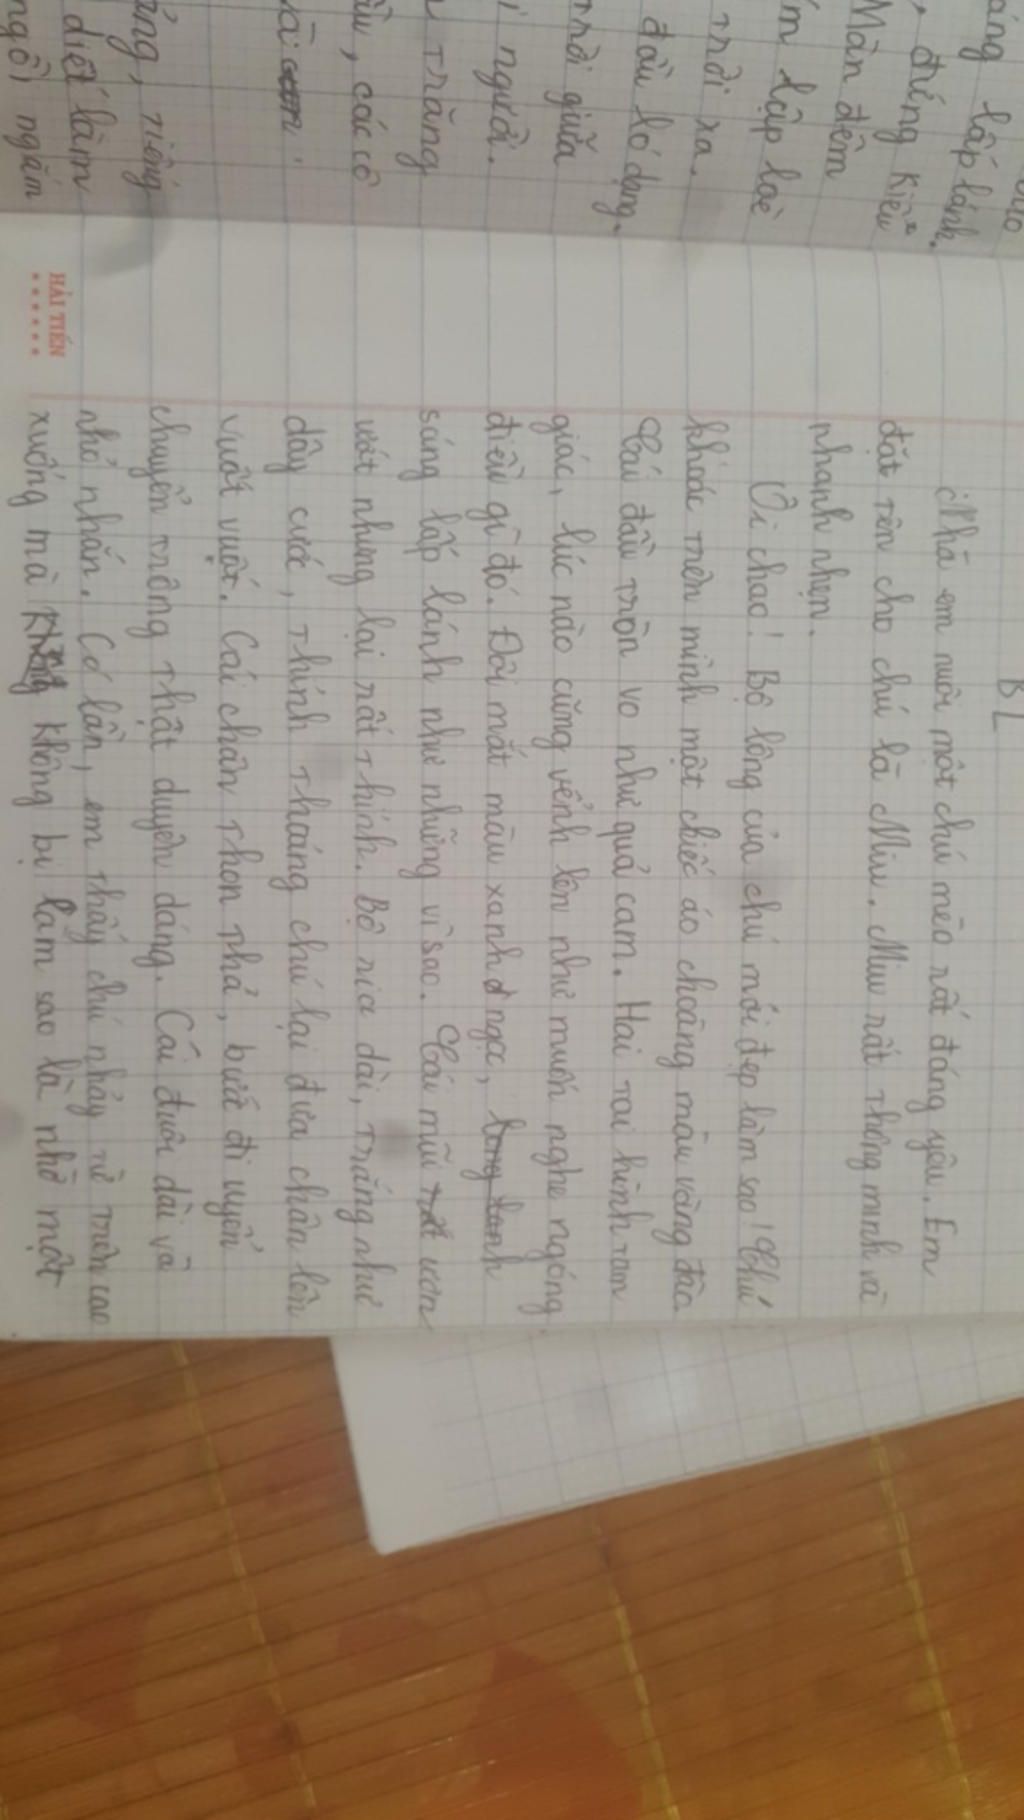 áng lấp lánh.
, đứng kiểu
Màn đêm
m lập loè
trời xa.
đầu ló dạng.
trời giữa
i người.
u trăng
ầu, các cô
diết làm
ngồi ngắm
HẢI TIẾN
BL
Nhà em nuôi một chú mèo rất đáng yêu. Em
đặt tên cho chú là Miu. Miu rất thông minh và
nhanh nhẹn.
Ôi chao! Bộ lông của chú mới đẹp làm sao! Chú
khoác trên mình một chiếc áo choàng màu vàng
Cái đầu tròn vo như quả cam. Hai tai hình tam
giác, lúc nào cũng vểnh lên như muốn nghe ngóng
điều gì đó. Đôi mắt màu xanh ngọc,
sáng lấp lánh như những vì sao. Cái mũi ươn
ướt nhưng lại rất thính. Bộ ria dài, trắng như
dây cước, thính thoảng chú lại đưa chân lên
vuốt vuốt. Cái chân thon thả, bước đi uyển
chuyển trông thật duyên dáng. Cái đuôi dài và
nhỏ nhắn. Có lần, em thấy chú nhảy từ trên cao
xuống mà không bị làm sao là nhờ một